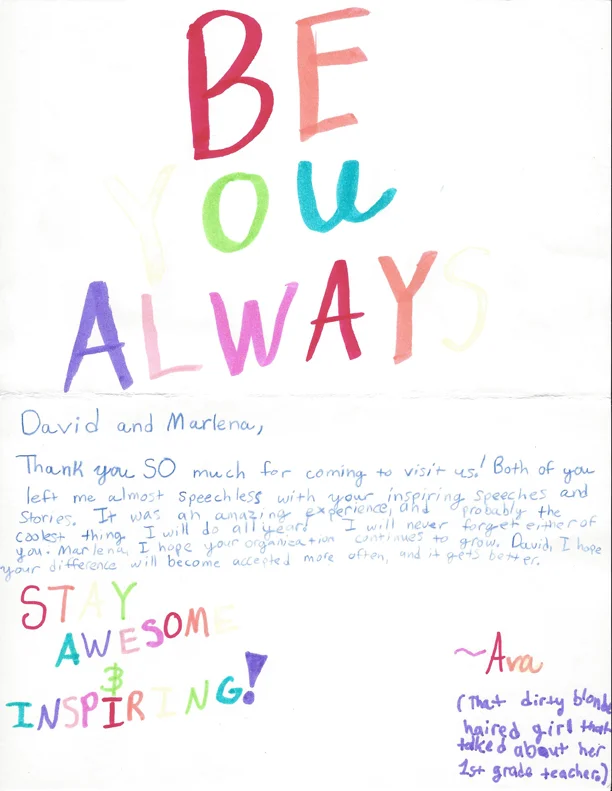 BE
YOU
ALWAYS
David and Marlena,
Thank you SO much for coming to visit us! Both of you
left me almost speechless with your inspiring speeches and
Stories. It was an amazing experience, and probably the
coolest thing I will do all year! I will never forget either of
you. Marlena, I hope your organization continues to grow. David, I hope
your difference will become accepted more often, and it gets better.
STAY
AWESOME
&
INSPIRING!
~Ava
(That dirty blonde
haired girl that
talked about her
1st grade teacher.)